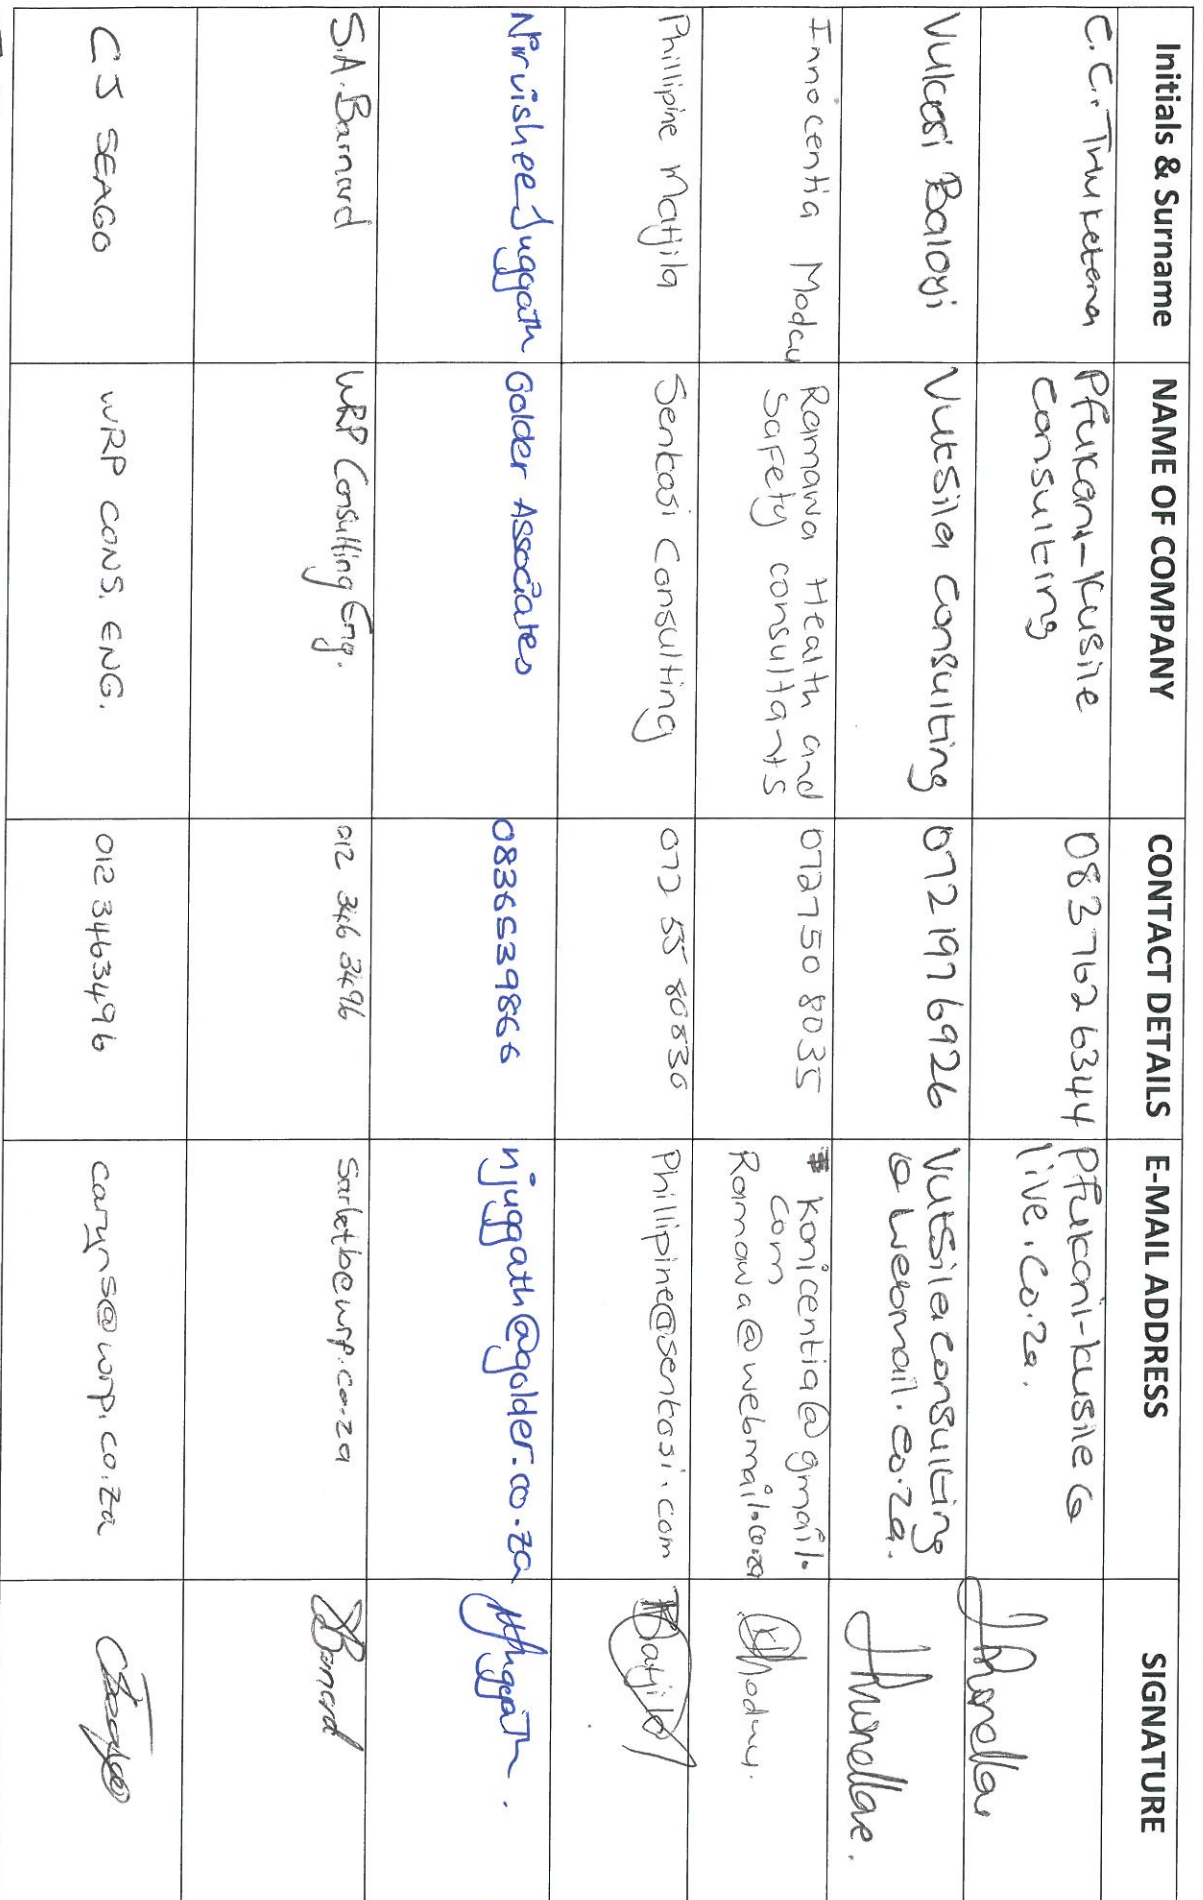 Initials & Surname NAME OF COMPANY CONTACT DETAILS E-MAIL ADDRESS SIGNATURE
C.C. Thuketana Pfukani-Kusile 0837626344 Pfukani-kusile@
Consulting live.co.za.
Vulcosi Baloyi Vutsila Consulting 072 197 6926 Vutsilaconsulting
@webmail.co.za.
Innocentia Modau Ramawa Health and 072750 8035 Konicentia@gmail.
Safety consultants com
Ramawa@webmail.co.za
Phillipine Matjila Senkosi Consulting 072 55 80830 Phillipine@senkosi.com Matjila
Nirvishee Juggath Golder Associates 0836539866 njuggath@golder.co.za Juggath.
S.A. Barnard WRP Consulting Eng. 012 346 3496 Sarletb@wrp.co.za SBarnard
CJ SEAGO WRP CONS. ENG. 012 3463496 caryns@wrp.co.za CSeago